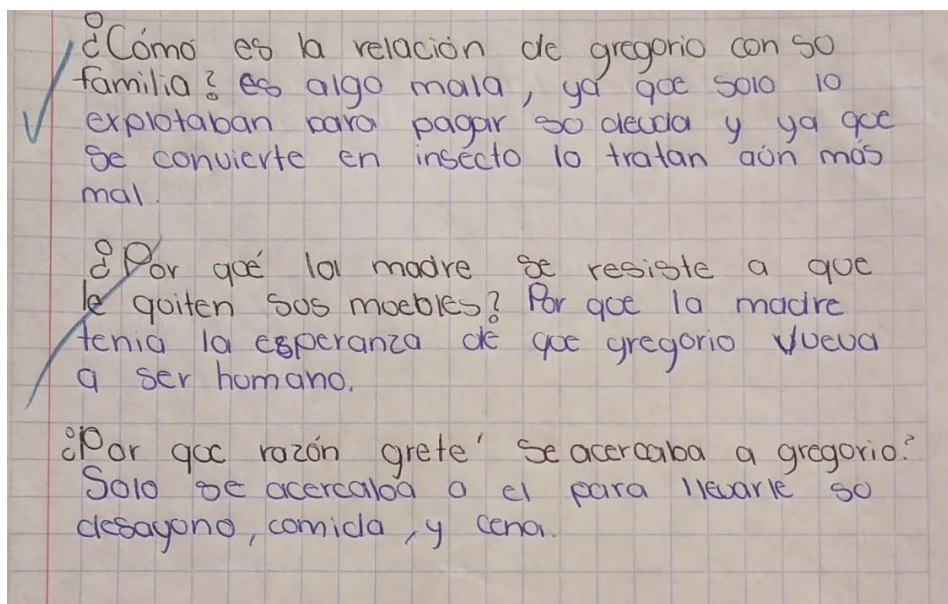 ¿Cómo es la relación de gregorio con su
familia? es algo mala, ya que solo lo
explotaban para pagar su deuda y ya que
se convierte en insecto lo tratan aún más
mal.
¿Por qué la madre se resiste a que
le quiten sus muebles? Por que la madre
tenia la esperanza de que gregorio vueva
a ser humano.
¿Por que razón grete' se acercaba a gregorio?
Solo se acercaba a el para llevarle su
desayuno, comida, y cena.